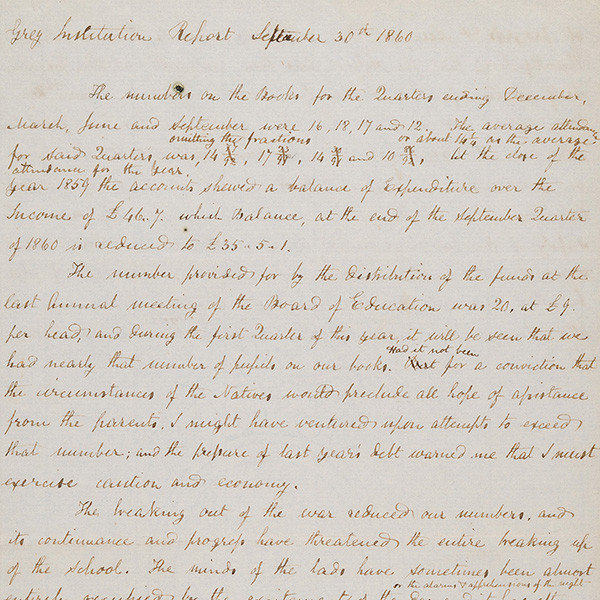 Grey Institution Report September 30th 1860
The numbers on the Books for the Quarters ending December,
March, June and September were 16, 18, 17 and 12. The average attendance
omitting the fractions or about 14¼ as the average
for said Quarters, was, 14, 17, 14 and 10, At the close of the
attendance for the year.
year 1859 the accounts shewed a balance of Expenditure over the
Income of £46.7. which Balance, at the end of the September Quarter
of 1860 is reduced to £35-5-1.
The number provided for by the distribution of the funds at the
last Annual meeting of the Board of Education was 20, at £9.
per head, and during the first Quarter of this year, it will be seen that we
Had it not been
had nearly that number of pupils on our books. for a conviction that
the circumstances of the Natives would preclude all hope of assistance
from the parents, I might have ventured upon attempts to exceed
that number; and the pressure of last year's debt warned me that I must
exercise caution and economy.
The breaking out of the war reduced our numbers, and
its continuance and progress have threatened the entire breaking up
of the school. The minds of the lads have sometimes been almost
or the alarms & apprehensions of the night
entirely occupied by the of the day